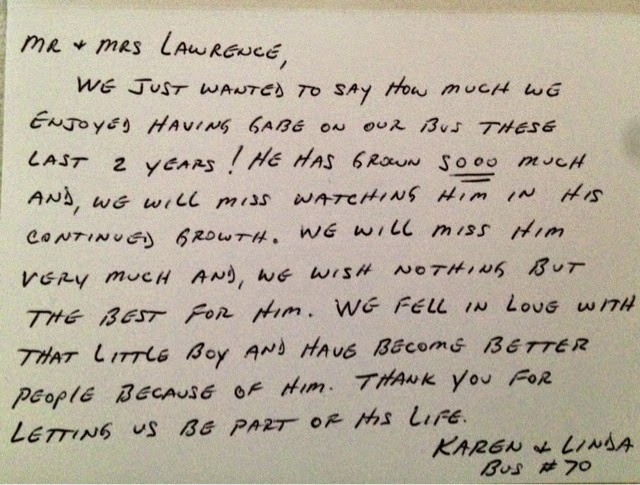 MR + MRS LAWRENCE,
WE JUST WANTED TO SAY HOW MUCH WE
ENJOYED HAVING GABE ON OUR BUS THESE
LAST 2 YEARS! HE HAS GROWN SOOO MUCH
AND, WE WILL MISS WATCHING HIM IN HIS
CONTINUED GROWTH. WE WILL MISS HIM
VERY MUCH AND, WE WISH NOTHING BUT
THE BEST FOR HIM. WE FELL IN LOVE WITH
THAT LITTLE BOY AND HAVE BECOME BETTER
PEOPLE BECAUSE OF HIM. THANK YOU FOR
LETTING US BE PART OF HIS LIFE.
KAREN + LINDA
BUS #70